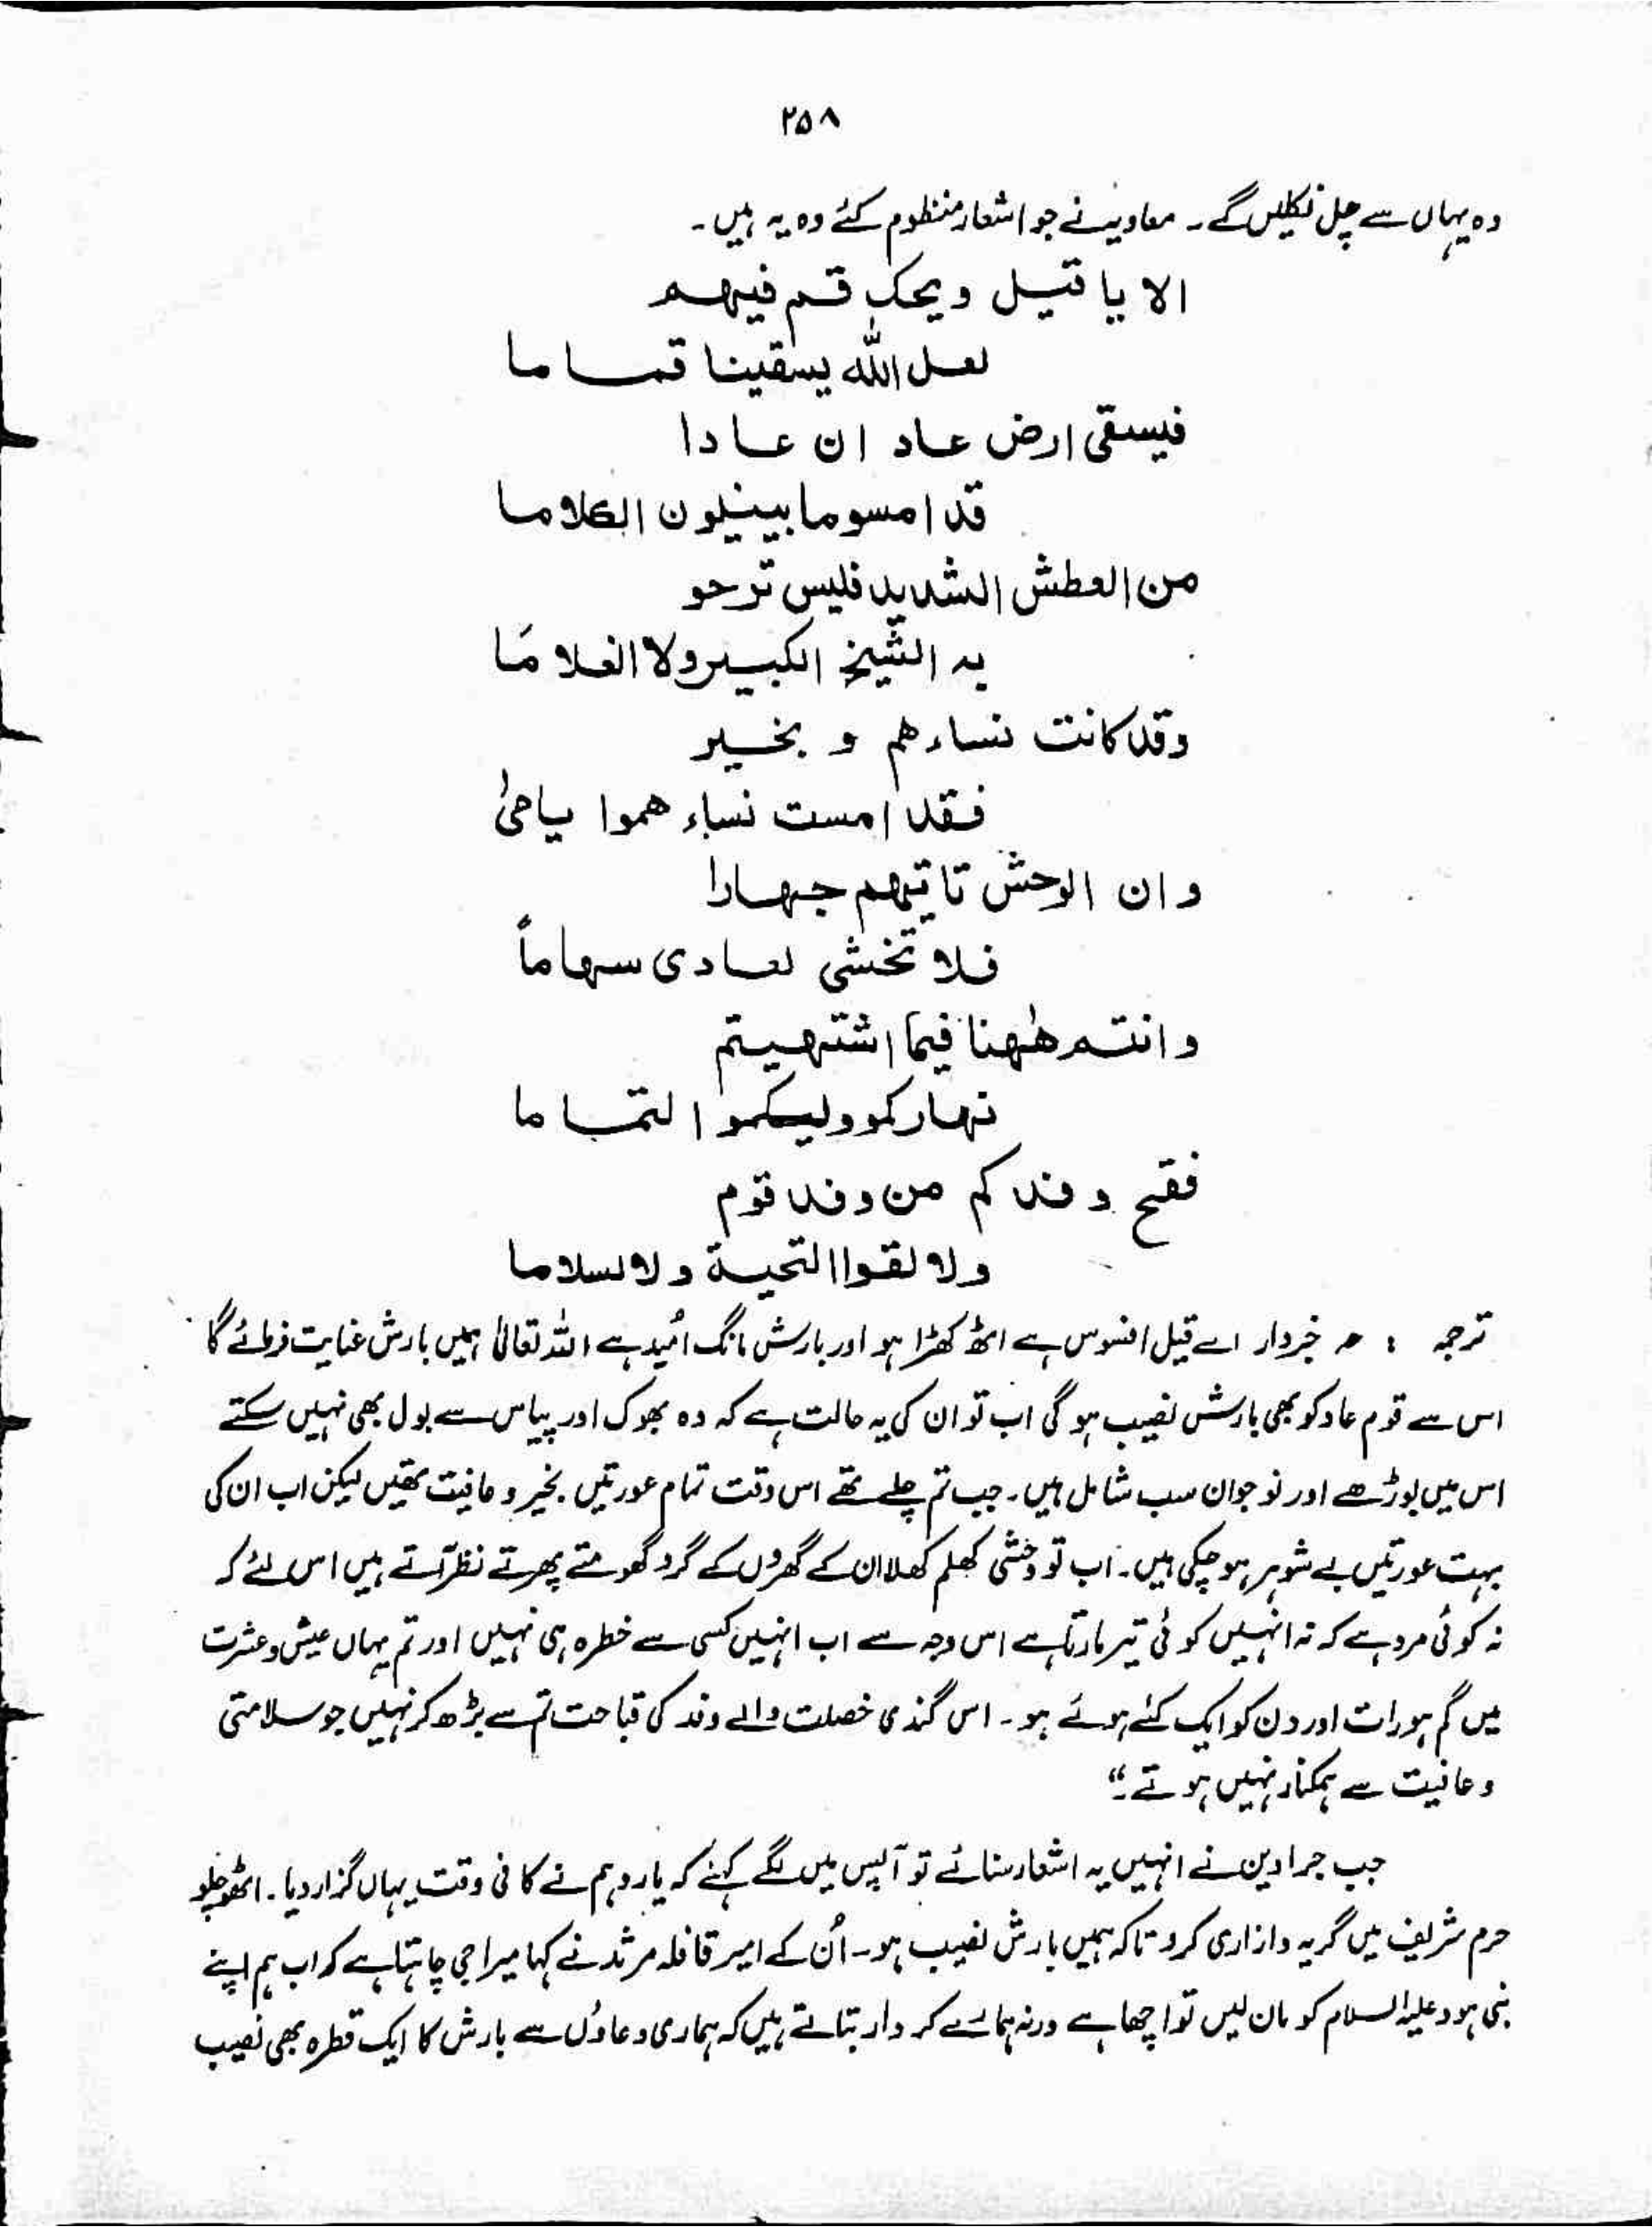 ۲۵۸
وہ یہاں سے چل نکلیں گے۔ معاویہ نے جو اشعار منظوم کئے وہ یہ ہیں۔
الا یا قیل ویحک قم فیہم
لعل اللہ یسقینا قماما
فیسقی ارض عاد ان عادا
قد امسوما بینلون الکلاما
من العطش الشدید فلیس ترحو
بہ الشیخ الکبیر ولا الغلامَا
وقد کانت نساءھم و بخیر
فقد امست نساء ھموا یاحیٰ
وان الوحش تاتیھم جہارا
فلا تخشی لعادی سہاماً
وانتم ھٰھنا فیما اشتہیتم
نہارکمو ولیکموا لتماما
فقبح وفد کم من وفد قوم
ولا لقوا التحیۃ ولا لسلاما
ترجمہ : ؎ خبردار اے قیل افسوس ہے اٹھ کھڑا ہو اور بارش مانگ اُمید ہے اللہ تعالیٰ ہمیں بارش عنایت فرمائے گا
اس سے قوم عاد کو بھی بارش نصیب ہو گی اب تو ان کی یہ حالت ہے کہ وہ بھوک اور پیاس سے بول بھی نہیں سکتے
اس میں بوڑھے اور نوجوان سب شامل ہیں۔ جب تم چلے تھے اس وقت تمام عورتیں بخیر و عافیت تھیں لیکن اب ان کی
بہت عورتیں بے شوہر ہو چکی ہیں۔ اب تو وحشی کھلم کھلا ان کے گھروں کے گرد گھومتے پھرتے نظر آتے ہیں اس لئے کہ
نہ کوئی مرد ہے کہ نہ انہیں کوئی تیر مارتا ہے اس وجہ سے اب انہیں کسی سے خطرہ ہی نہیں اور تم یہاں عیش و عشرت
میں گم ہو رات اور دن کو ایک کئے ہوئے ہو۔ اس گندی خصلت والے وفد کی قباحت تم سے بڑھ کر نہیں جو سلامتی
و عافیت سے ہمکنار نہیں ہوتے۔“
جب جرادین نے انہیں یہ اشعار سنائے تو آپس میں لگے کہنے کہ یارو ہم نے کافی وقت یہاں گزار دیا۔ اٹھو چلو
حرم شریف میں گریہ وازاری کرو تاکہ ہمیں بارش نصیب ہو۔ اُن کے امیر قافلہ مرثد نے کہا میرا جی چاہتا ہے کہ اب ہم اپنے
نبی ہود علیہ السلام کو مان لیں تو اچھا ہے ورنہ ہمارے کردار بتاتے ہیں کہ ہماری دعاؤں سے بارش کا ایک قطرہ بھی نصیب